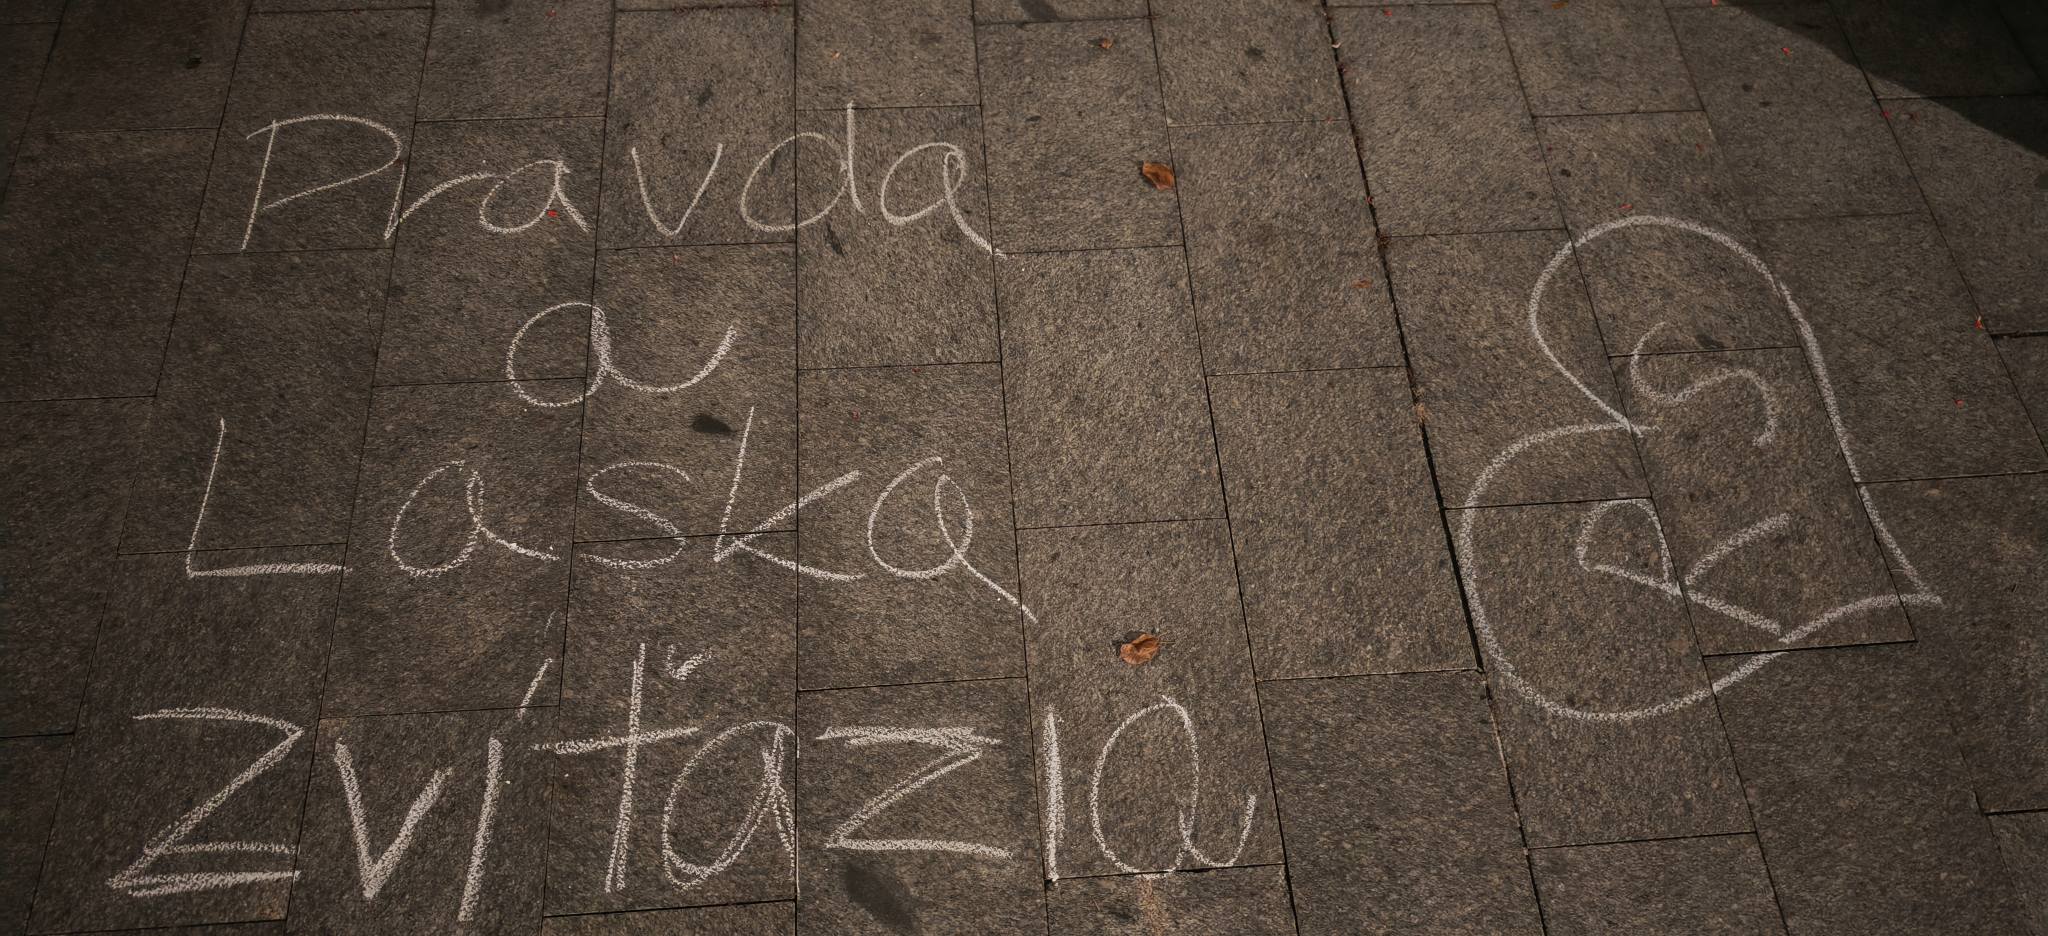 Pravda
a
Laska
Zvíťazia
RS